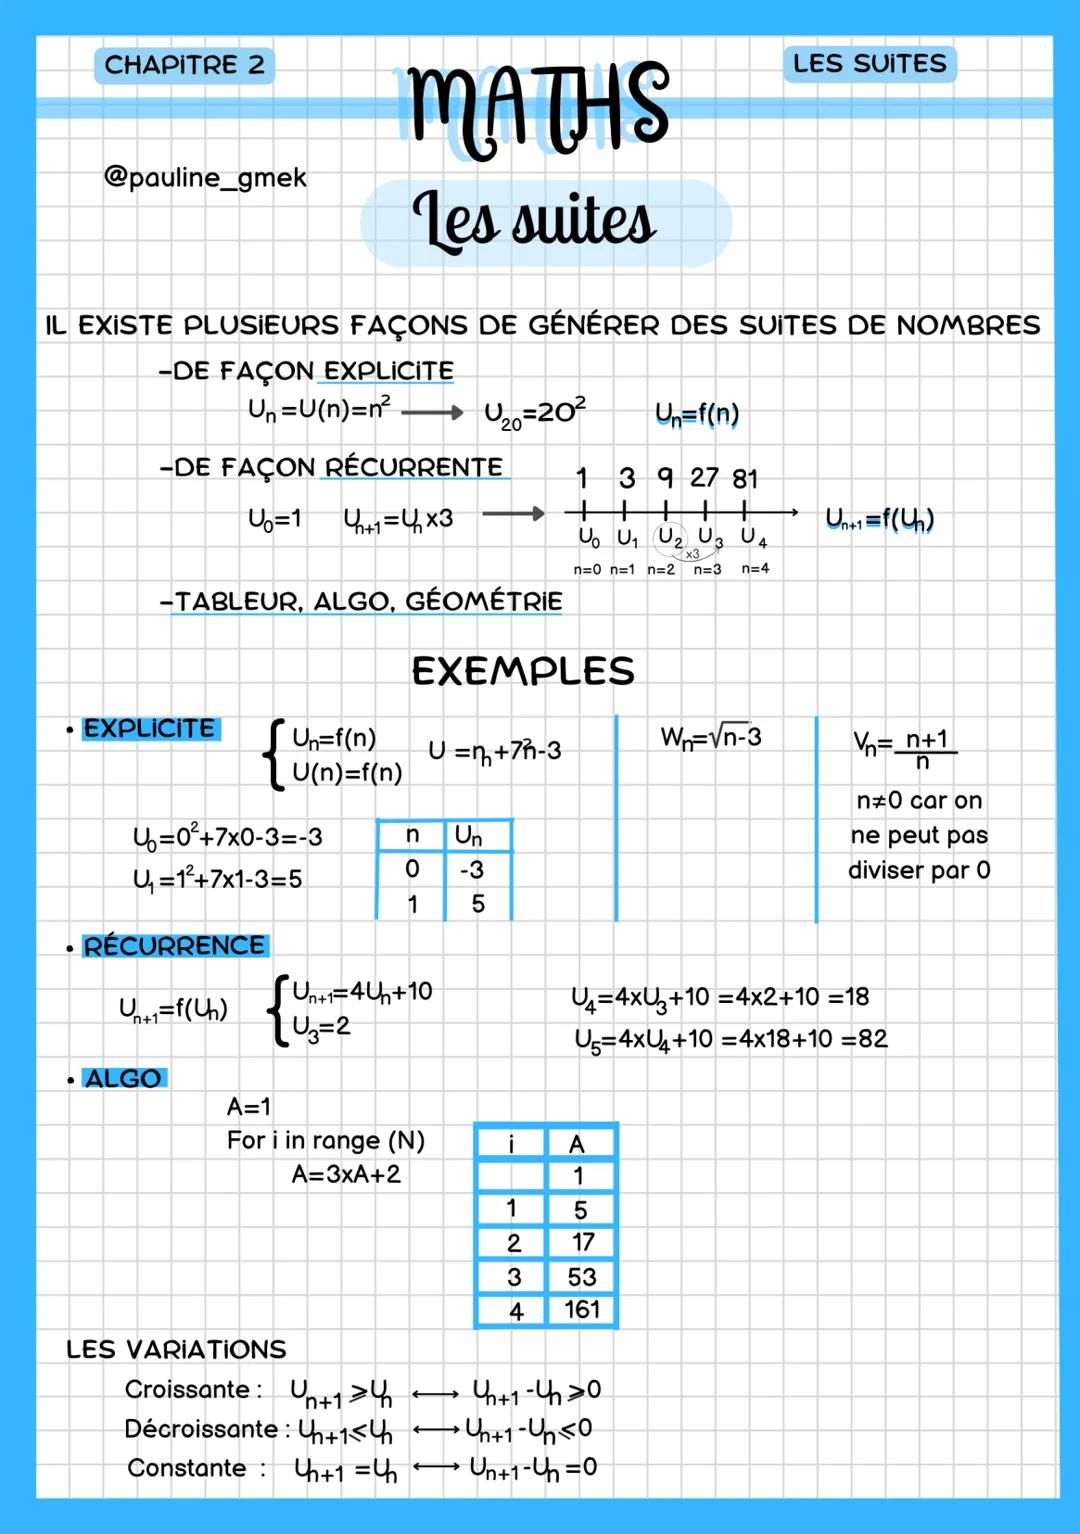 CHAPiTRE 2
MATHS
LES SUiTES
@pauline_gmek
Les suites
IL EXiSTE PLUSiEURS FAÇONS DE GÉNÉRER DES SUiTES DE NOMBRES
-DE FAÇON EXPLiCiTE
Uₙ=U(n)=n² ⟶ U₂₀=20² Uₙ=f(n)
-DE FAÇON RÉCURRENTE
1 3 9 27 81
U₀=1 Uₙ₊₁=Uₙx3 ⟶ Uₙ₊₁=f(Uₙ)
U₀ U₁ U₂ U₃ U₄
x3
n=0 n=1 n=2 n=3 n=4
-TABLEUR, ALGO, GÉOMÉTRiE
EXEMPLES
• EXPLiCiTE
Uₙ=f(n)
U(n)=f(n)
U =nₙ+7n²-3
Wₙ=√n-3
Vₙ= n+1
n
n≠0 car on
ne peut pas
diviser par 0
U₀=0²+7x0-3=-3
U₁=1²+7x1-3=5
n Uₙ
0 -3
1 5
• RÉCURRENCE
Uₙ₊₁=f(Uₙ)
Uₙ₊₁=4Uₙ+10
U₃=2
U₄=4xU₃+10 =4x2+10 =18
U₅=4xU₄+10 =4x18+10 =82
• ALGO
A=1
For i in range (N)
A=3xA+2
i A
1
1 5
2 17
3 53
4 161
LES VARiATiONS
Croissante : Uₙ₊₁⩾Uₙ ⟷ Uₙ₊₁-Uₙ⩾0
Décroissante : Uₙ₊₁⩽Uₙ ⟷ Uₙ₊₁-Uₙ⩽0
Constante : Uₙ₊₁=Uₙ ⟷ Uₙ₊₁-Uₙ=0